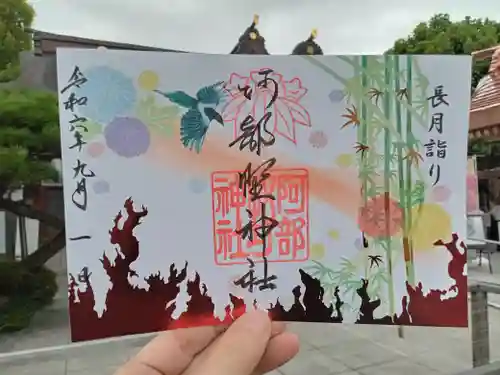 長月詣り
阿部野神社
阿部野神社
令和六年九月一日